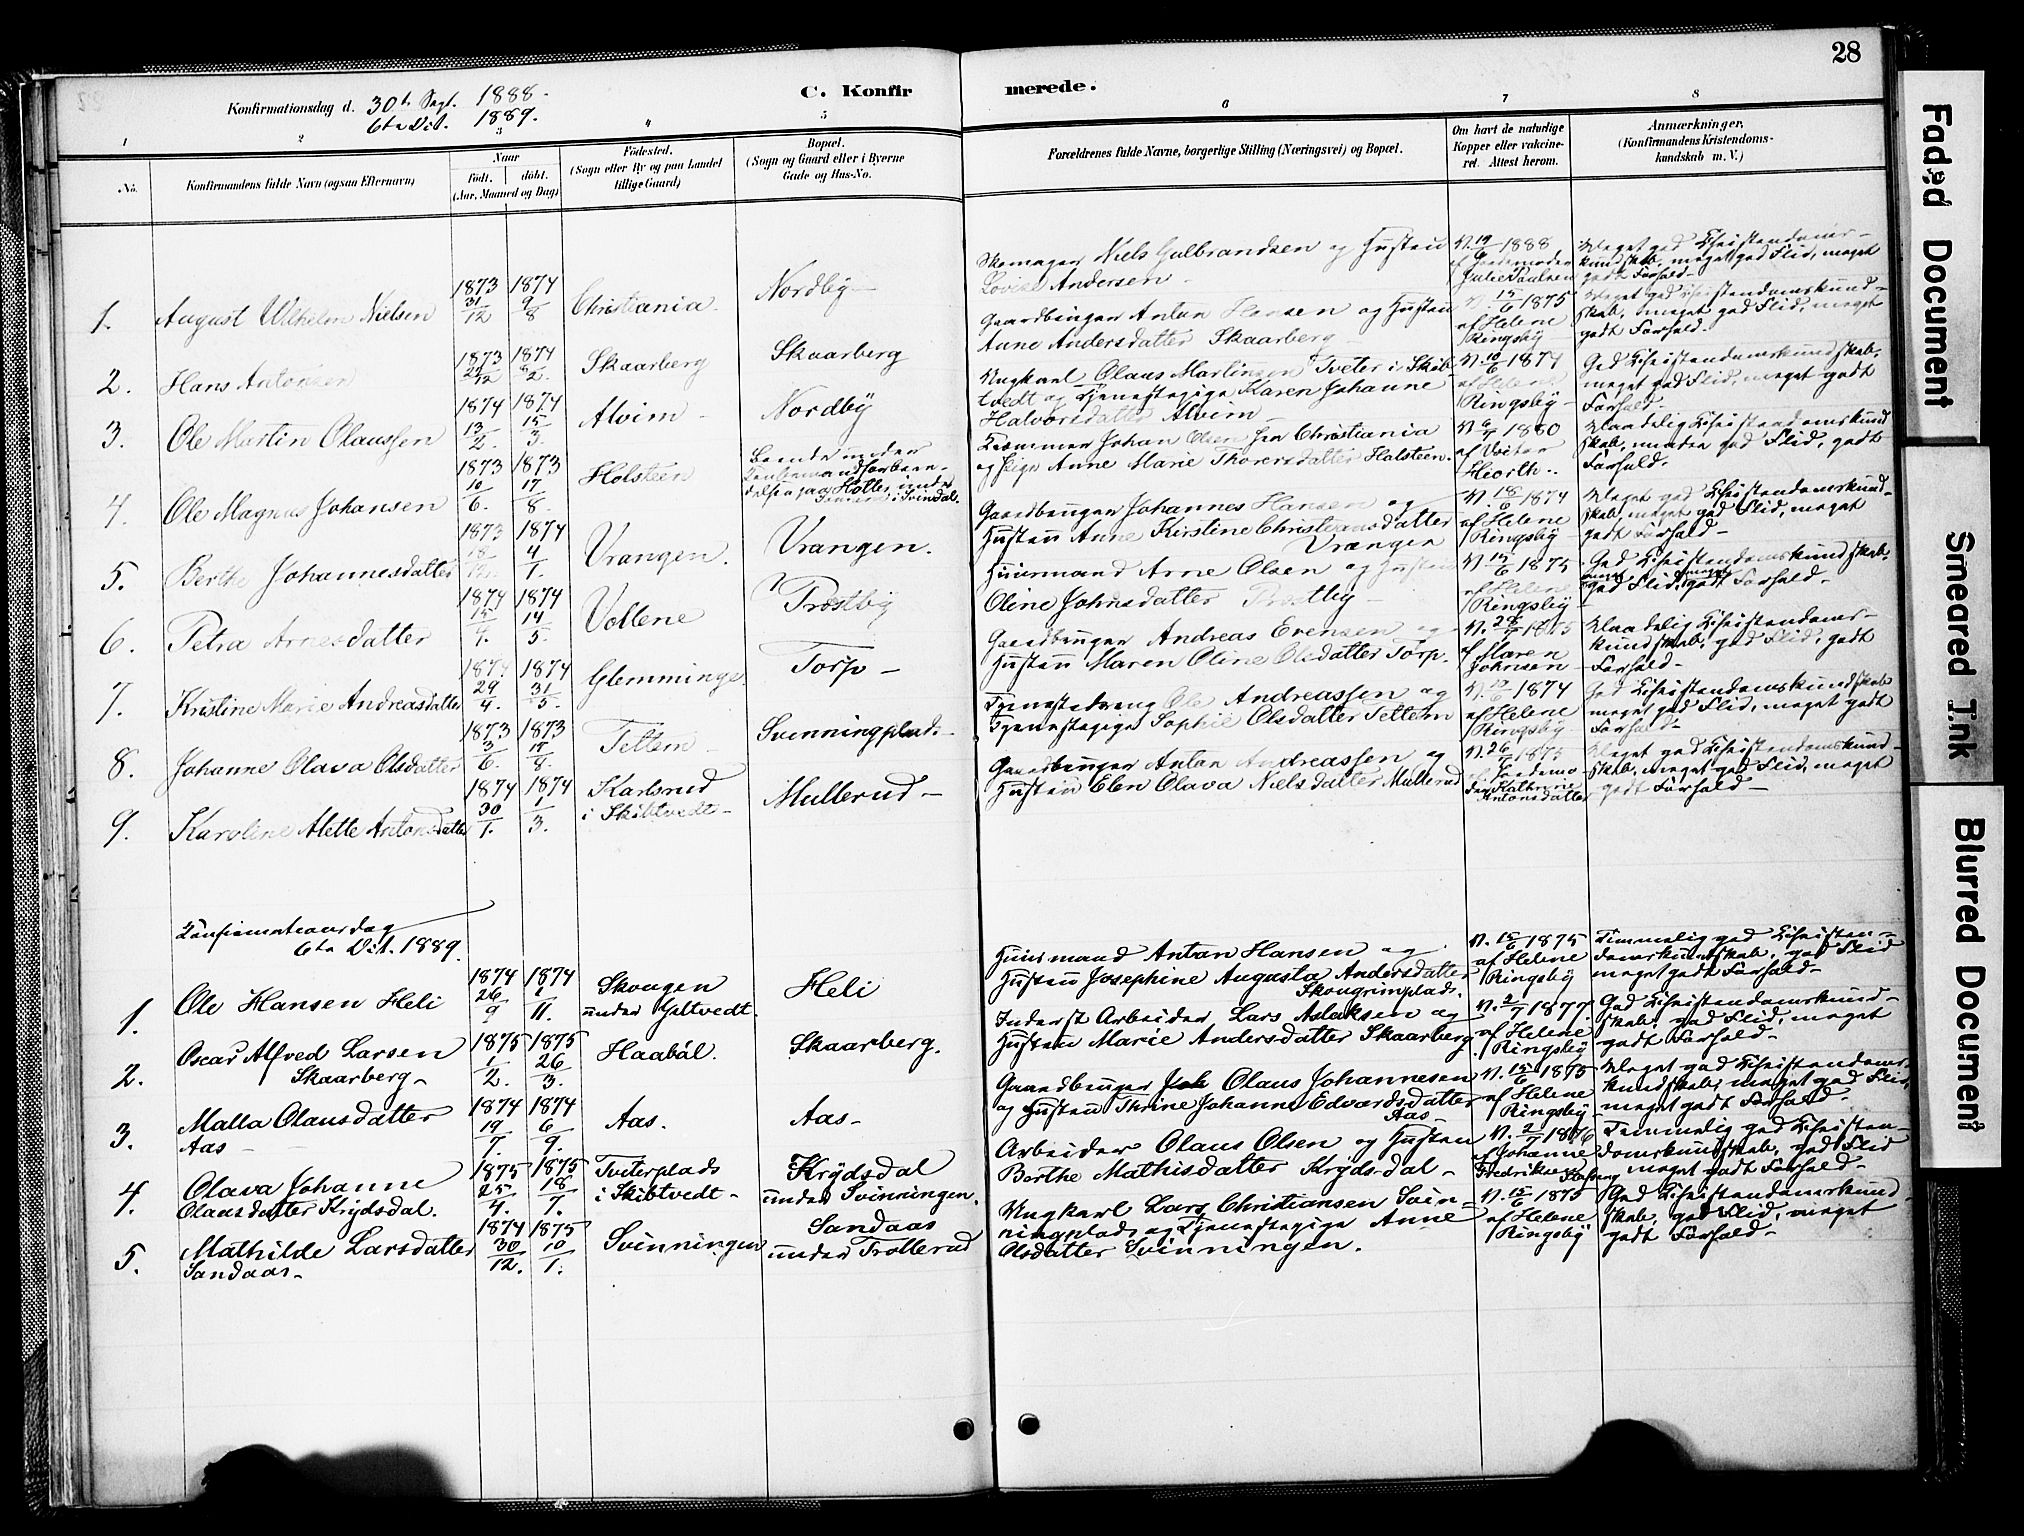 28
C. Konfirmerede.
Konfirmationsdag d. 30te Sept. 1888.
6te Okt. 1889.
1 2 3 4 5 6 7 8
No.
Konfirmandens fulde Navn (ogsaa Efternavn)
Naar
Födt. döbt.
(Aar, Maaned og Dag)
Födested.
(Sogn eller By og paa Landet
tillige Gaard)
Bopæl.
(Sogn og Gaard eller i Byerne
Gade og Hus-No.
Forældrenes fulde Navne, borgerlige Stilling (Næringsvei) og Bopæl.
Om havt de naturlige
Kopper eller vakcine-
ret. Attest herom.
Anmærkninger,
(Konfirmandens Kristendoms-
kundskab m. V.)
1. August Wilhelm Nielsen
1873 31/12 1874 9/8
Christiania.
Nordby
Skomager Niels Gulbrandsen og Hustru
Lovise Andersen
V. 19/9 1888
af Jordemoder
Julie Paulsen
Meget god Christendoms-
kundskab, meget god Flid, meget
godt Forhold
2. Hans Antonsen
1873 1874
Skaarberg
Skaarberg
Gaardbruger Anton Hansen og Hustru
Anne Andersdatter Skaarberg
V. 15/6 1875
af Helene
Ringsby
Meget god Christendomskund-
skab, meget god Flid, meget
godt Forhold.
3. Ole Martin Olaussen
1874 13/2. 1874 15/3.
Alvim
Nordby
Ungkarl Olaus Martinsen Tveter i Skib-
tvedt og Tjenestepige Karen Johanne
Halvorsdatter Alvim
V. 10/6 1877
af Helene
Ringsby
God Christendomskundskab,
meget god Flid, meget godt
Forhold.
4. Ole Magnus Johansen
1873 10/6. 1873 17/8.
Holsteen
Tømmer Johan Olsen fra Christiania
og Pige Anne Marie Thorersdatter Holsteen.
V. 6/7 1880
af Doktor
Hiorth.
Maadelig Christendomskund
skab, mindre god Flid, godt
Forhold.
5. Berthe Johannesdatter
1873 18/12. 1874 4/1.
Vrangen.
Vrangen.
Gaardbruger Johannes Hansen og
Hustru Anne Kirstine Christiansdatter
Vrangen
V. 18/6 1874
af Helene
Ringsby
Meget god Christendomskund-
skab, meget god Flid, meget
godt Forhold
6. Petra Arnesdatter
1874 1874 14/5.
Vollene
Trøstby
Huusmand Arne Olsen og Hustru
Oline Johnsdatter Trøstby
V. 15/6 1875
af Helene
Ringsby
God Christendomskundskab,
god Flid, godt Forhold.
7. Kristine Marie Andreasdatter
1874 29/4. 1874 31/5.
Glemminge
Torp
Gaardbruger Andreas Evensen og
Hustru Maren Oline Olsdatter Torp.
V. 28/7 1875
af Maren
Johnsen
Maadelig Christendoms-
kundskab, god Flid, godt
Forhold
8. Johanne Olava Olsdatter
1873 3/6. 1873
Tettern
Svenningplads.
Tjenestedreng Ole Andreassen og
Tjenestepige Sophie Olsdatter Tettern
1874
af Helene
Ringsby
God Christendomskundskab
meget god Flid, meget godt
Forhold
9. Karoline Alette Antonsdatter
1874 30/1. 1874 1/3.
Karlsrud
i Skibtvedt
Mullerud
Gaardbruger Anton Andreassen og
Hustru Elen Olava Nielsdatter Mullerud
V. 26/7 1875
af Jordemo
der Kathrine
Antonsdatter
Meget god Christendomskund-
skab, meget god Flid, meget
godt Forhold
Konfirmationsdag
6te Okt. 1889.
1. Ole Hansen Heli
1874 26/9 1874 1/11.
Skougen
under Geltvedt.
Heli
Huusmand Anton Hansen og
Hustru Josephine Augusta Andersdatter
Skougrimplads.
V. 15/6 1875
af Helene
Ringsby
Temmelig god Christen-
domskundskab, god Flid
meget godt Forhold
2. Oscar Alfred Larsen
Skaarberg
1875 1/2. 1875 26/3.
Haabøl.
Skaarberg.
Inderst Arbeider Lars Aslaksen og
Hustru Marie Andersdatter Skaarberg
V. 2/7 1877
af Helene
Ringsby
God Christendomskund-
skab, god Flid, meget
godt Forhold
3. Malla Olausdatter
Aas
1874 19/7. 1874 6/9.
Aas.
Aas
Gaardbruger Joh Olaus Johannesen
og Hustru Thrine Johanne Edvardsdatter
Aas
V. 15/6 1875
af Helene
Ringsby
Meget god Christendoms-
kundskab, meget god Flid,
meget godt Forhold.
4. Olava Johanne
Olausdatter Krydsdal.
1875 25/4. 1875 18/7.
Tveterplads
i Skibtvedt
Krydsdal
under Svinningen.
Arbeider Olaus Olsen og Hustru
Berthe Mathisdatter Krydsdal
V. 2/7 1876
af Johanne
Fredrikke
Temmelig god Christen-
domskundskab, god Flid
meget godt Forhold
5. Mathilde Larsdatter
Sandaas
1874 30/12. 1875 10/1.
Svinningen
Sandaas
under Trollerud
Ungkarl Lars Christiansen Svin-
ningplads og Tjenestepige Anne
Olsdatter Svinningen.
V. 15/6 1875
af Helene
Ringsby
God Christendomskund-
skab, god Flid, meget
godt Forhold
Faded Document
Smeared Ink
Blurred Document